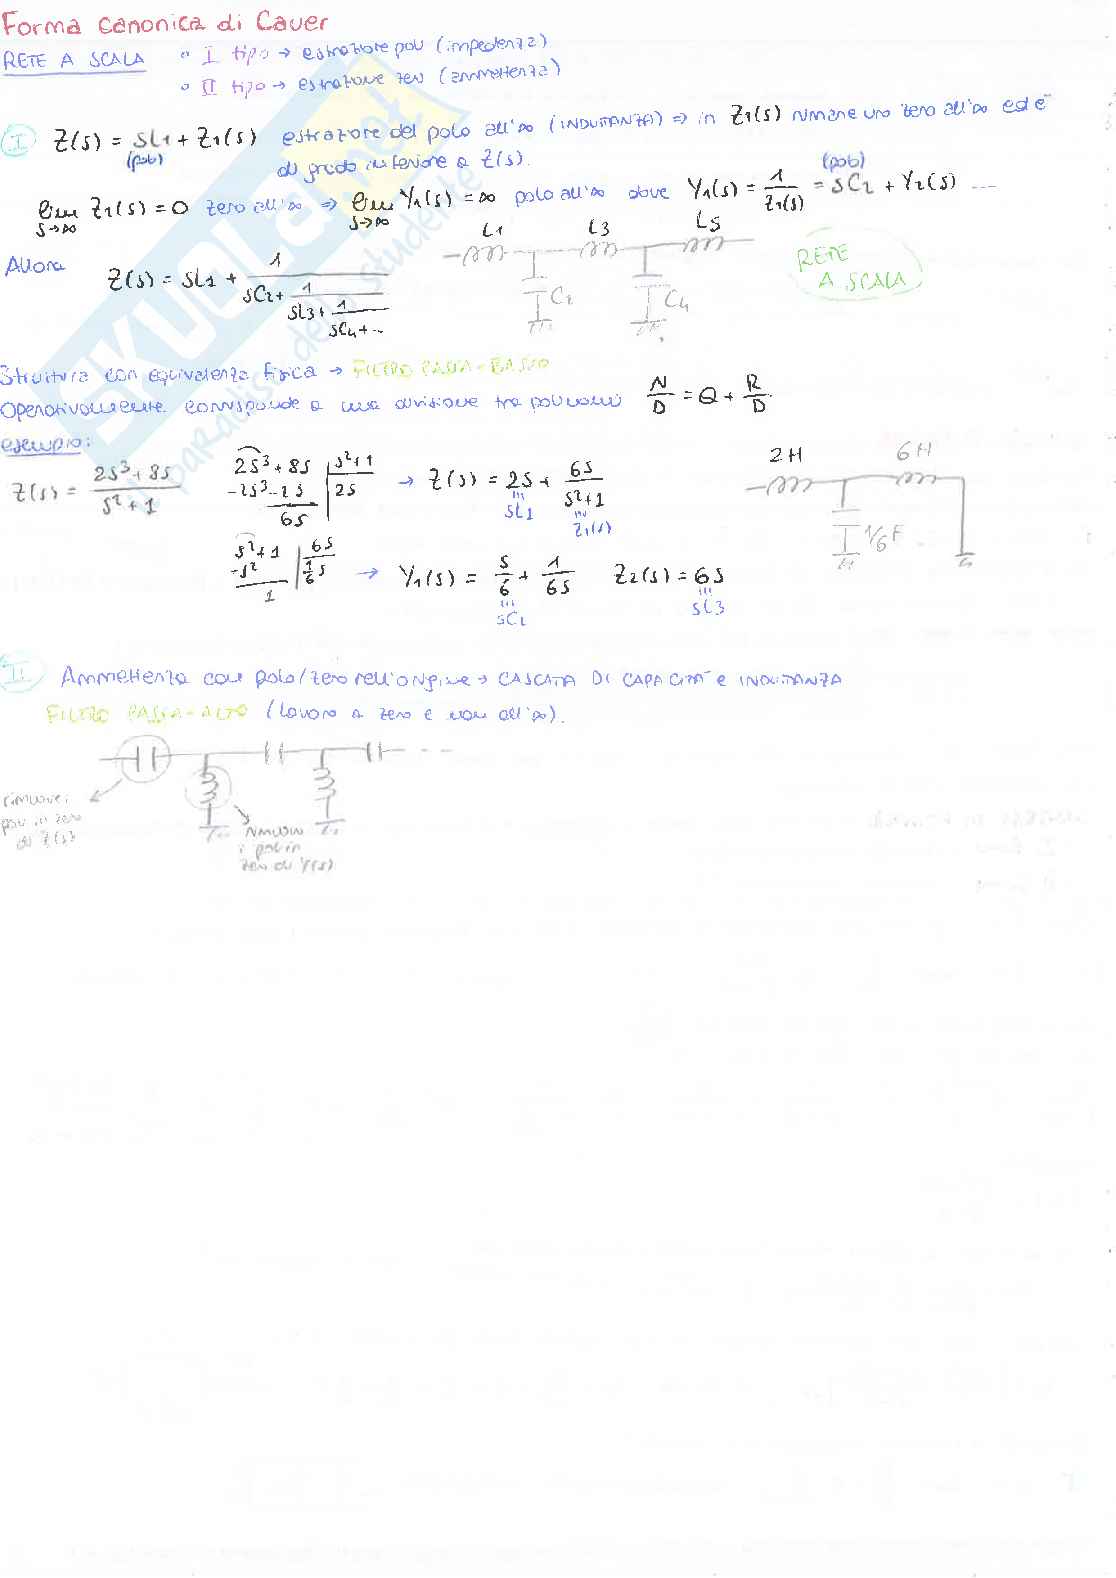 Forma canonica di Cauer
RETE A SCALA
° I tipo → estrazione poli (impedenza)
° II tipo → estrazione zeri (ammettenza)
I Z(s) = sL1 + Z1(s) estrazione del polo all'∞ (INDUTTANZA) ⇒ in Z1(s) rimane uno zero all'∞ ed è
(polo) di grado inferiore a Z(s).
lim s→∞ Z1(s) = 0 zero all'∞ ⇒ lim s→∞ Y1(s) = ∞ polo all'∞ dove Y1(s) = 1/Z1(s) = sC2 + Y2(s) ...
(polo)
Allora Z(s) = sL1 + 1/(sC2 + 1/(sL3 + 1/(sC4 + ...
L1 L3 L5
C2 C4
RETE A SCALA
Struttura con equivalenza fisica → FILTRO PASSA-BASSO
Operativamente corrisponde a una divisione tra polinomi N/D = Q + R/D.
esempio:
Z(s) = (2s³ + 8s)/(s² + 1)
2s³ + 8s | s² + 1
-2s³ - 2s | 2s
6s
→ Z(s) = 2s + 6s/(s² + 1)
sL1 Z1(s)
2H 6H
1/6 F
s² + 1 | 6s
-s² | 1/6 s
1
→ Y1(s) = s/6 + 1/6s Z2(s) = 6s
sC2 sL3
II Ammettenza con polo/zero nell'origine → CASCATA DI CAPACITÀ e INDUTTANZA
FILTRO PASSA-ALTO (lavoro a zero e non all'∞).
rimuove i
poli in zero
di Z(s)
rimuovo
i poli in
zero di Y(s)
SKUOLA.net
il paradiso dello studente